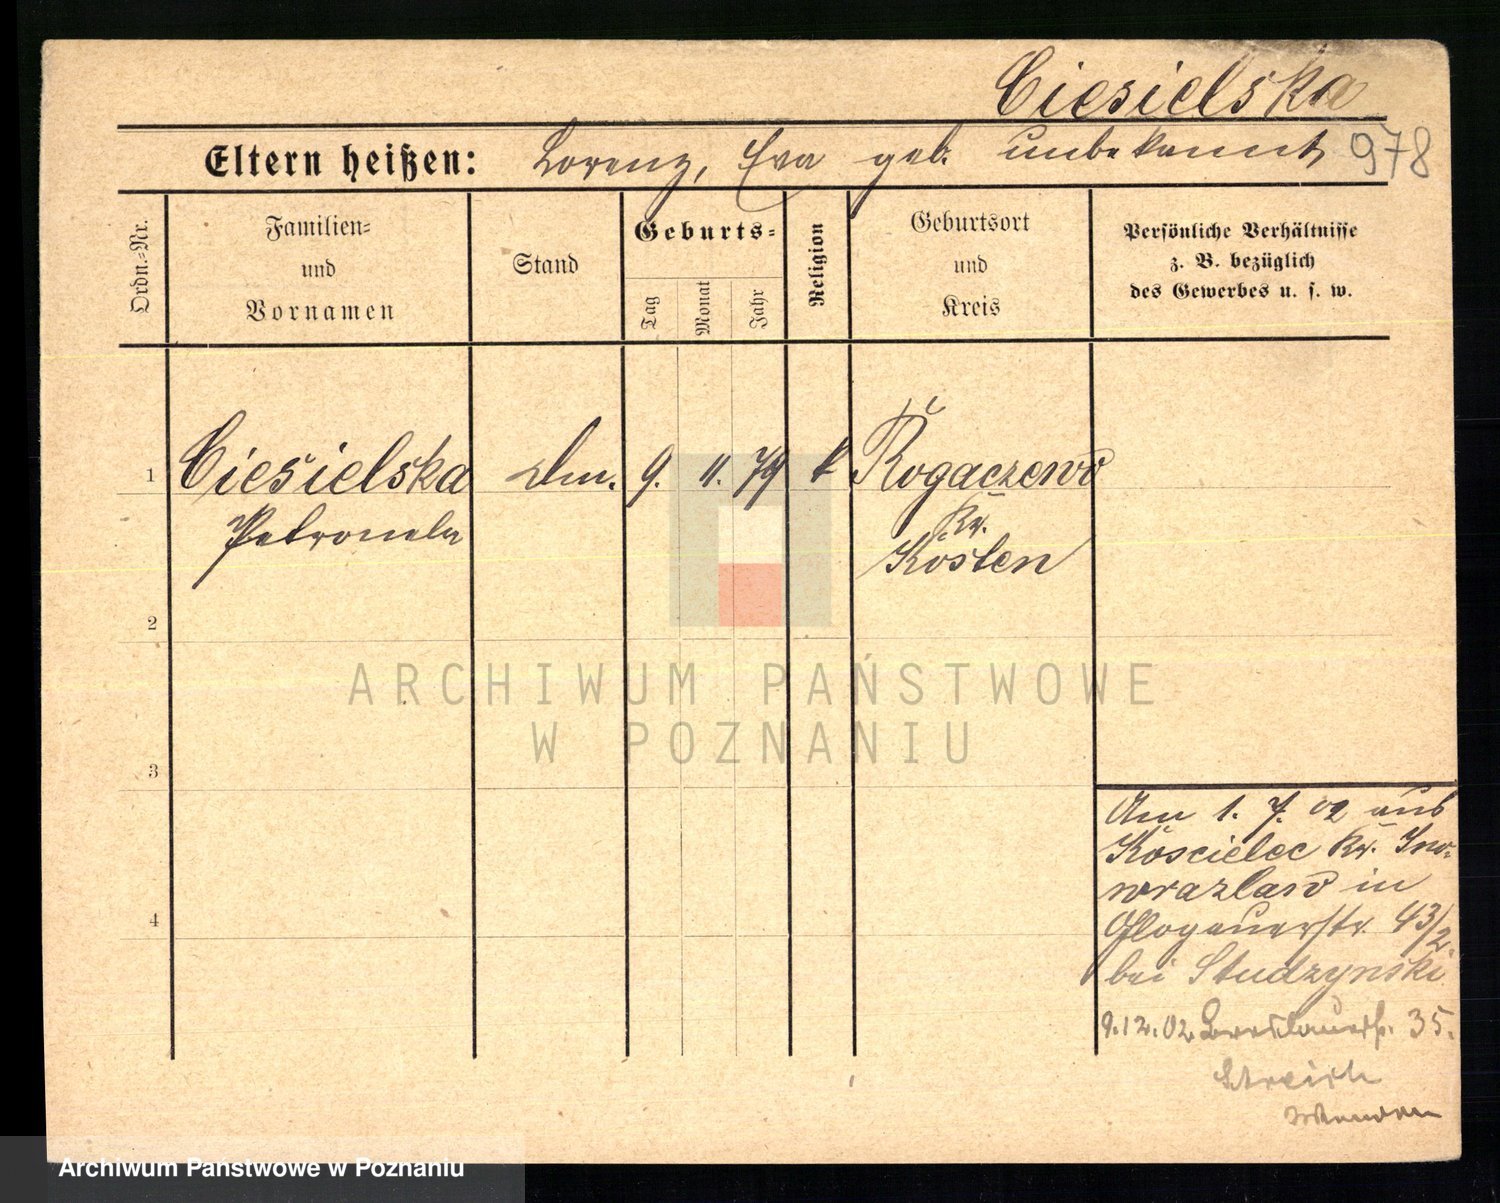 Ciesielska
Eltern heißen: Lorenz, Eva geb. unbekannt 978
Ordn.-Nr.
Familien-
und
Vornamen
Stand
Geburts-
Tag
Monat
Jahr
Religion
Geburtsort
und
Kreis
Persönliche Verhältnisse
z. B. bezüglich
des Gewerbes u. s. w.
1 Ciesielska Dm. 9. 11. 79 k Rogaczewo
Petronela Kr.
Kosten
2
3
4
Am 1. 7. 02 aus
Koscielec Kr. Ino-
wrazlaw in
Glogauerstr. 43/2.
bei Studzynski
9.12.02 Breslauerstr. 35.
ARCHIWUM PAŃSTWOWE
W POZNANIU
Archiwum Państwowe w Poznaniu